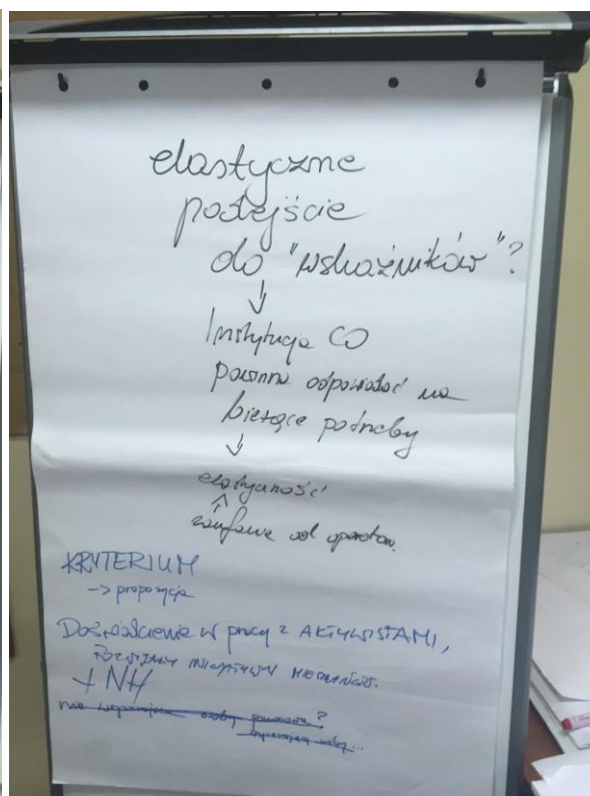 elastyczne
podejście
do "wskaźników"?
↓
Instytucja CO
powinna odpowiadać na
bieżące potrzeby
↓
elastyczność
zaufanie od operatora.
KRYTERIUM
-> propozycja
Doświadczenie w pracy z AKTYWISTAMI,
+ NH
nie wspierające osoby